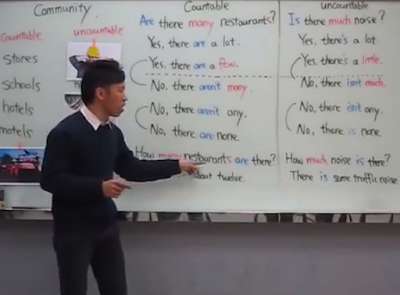 Community
Countable
uncountable
Stores
Schools
hotels
motels
Countable
Are there many restaurants?
Yes, there are a lot.
Yes, there are a few.
No, there aren't many.
No, there aren't any.
No, there are none.
How many restaurants are there?
about twelve.
uncountable
Is there much noise?
Yes, there's a lot.
Yes, there's a little.
No, there isn't much.
No, there isn't any.
No, there is none.
How much noise is there?
There is some traffic noise